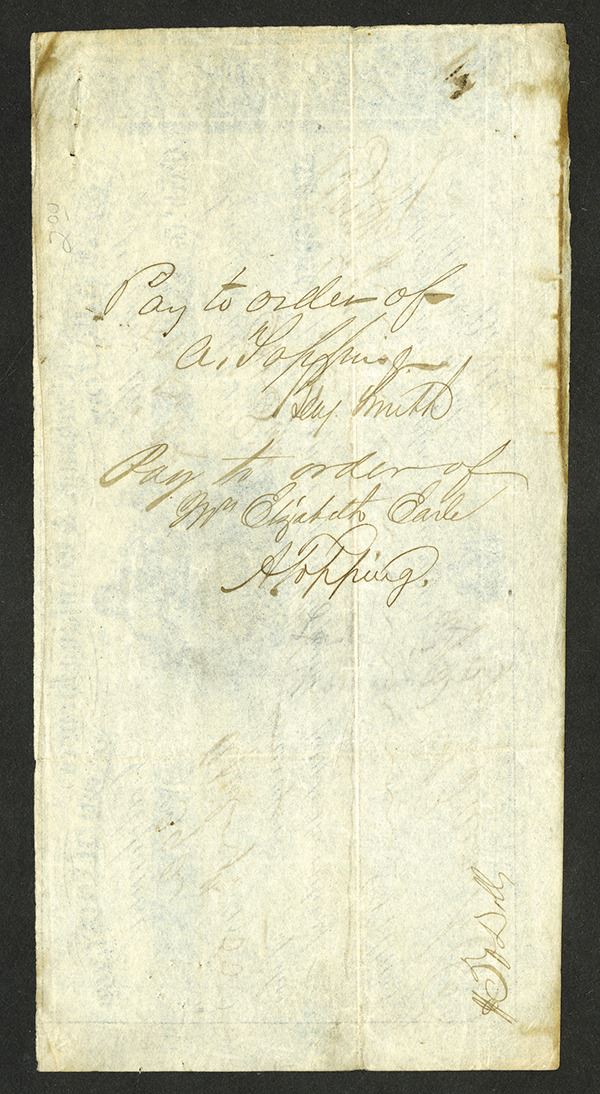 Pay to order of
A. Topping
Benj. Smith
Pay to order of
Mrs Elizabeth Earle
A. Topping.
200